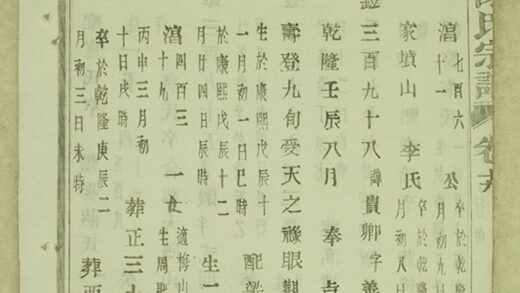 氏宗譜 卷
七百六
十一 公 卒於乾
月初九日
家墳山 李氏 卒於乾
月初八日
三百九十八 諱貴卿字善
乾隆壬辰八月 奉
壽登九旬受天之祿眼觀
生於康熙戊辰十
一月初一日巳時 配
於康熙戊辰十二
月廿四日辰時 生二
四百三
十九 一女 適梅山
生周
丙申三月初
十日戌時 葬正三
卒於乾隆庚辰二
月初三日未時 葬西